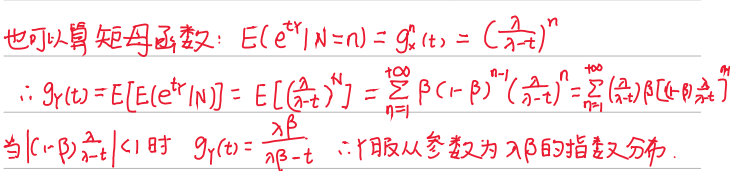 也可以算矩母函数: E(e^{tY}|N=n) = g_x^n(t) = (λ/(λ-t))^n
∴ g_Y(t) = E[E(e^{tY}|N)] = E[(λ/(λ-t))^N] = Σ_{n=1}^{+∞} β(1-β)^{n-1}(λ/(λ-t))^n = Σ_{n=1}^{+∞} (λ/(λ-t))β[(1-β)λ/(λ-t)]^{n-1}
当|(1-β)λ/(λ-t)|<1时 g_Y(t) = λβ/(λβ-t) ∴Y服从参数为λβ的指数分布.